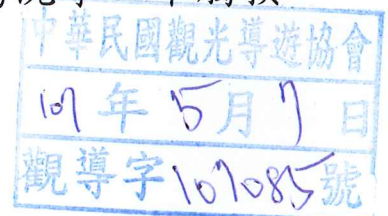 中華民國觀光導遊協會
107年5月7日
觀導字107085號